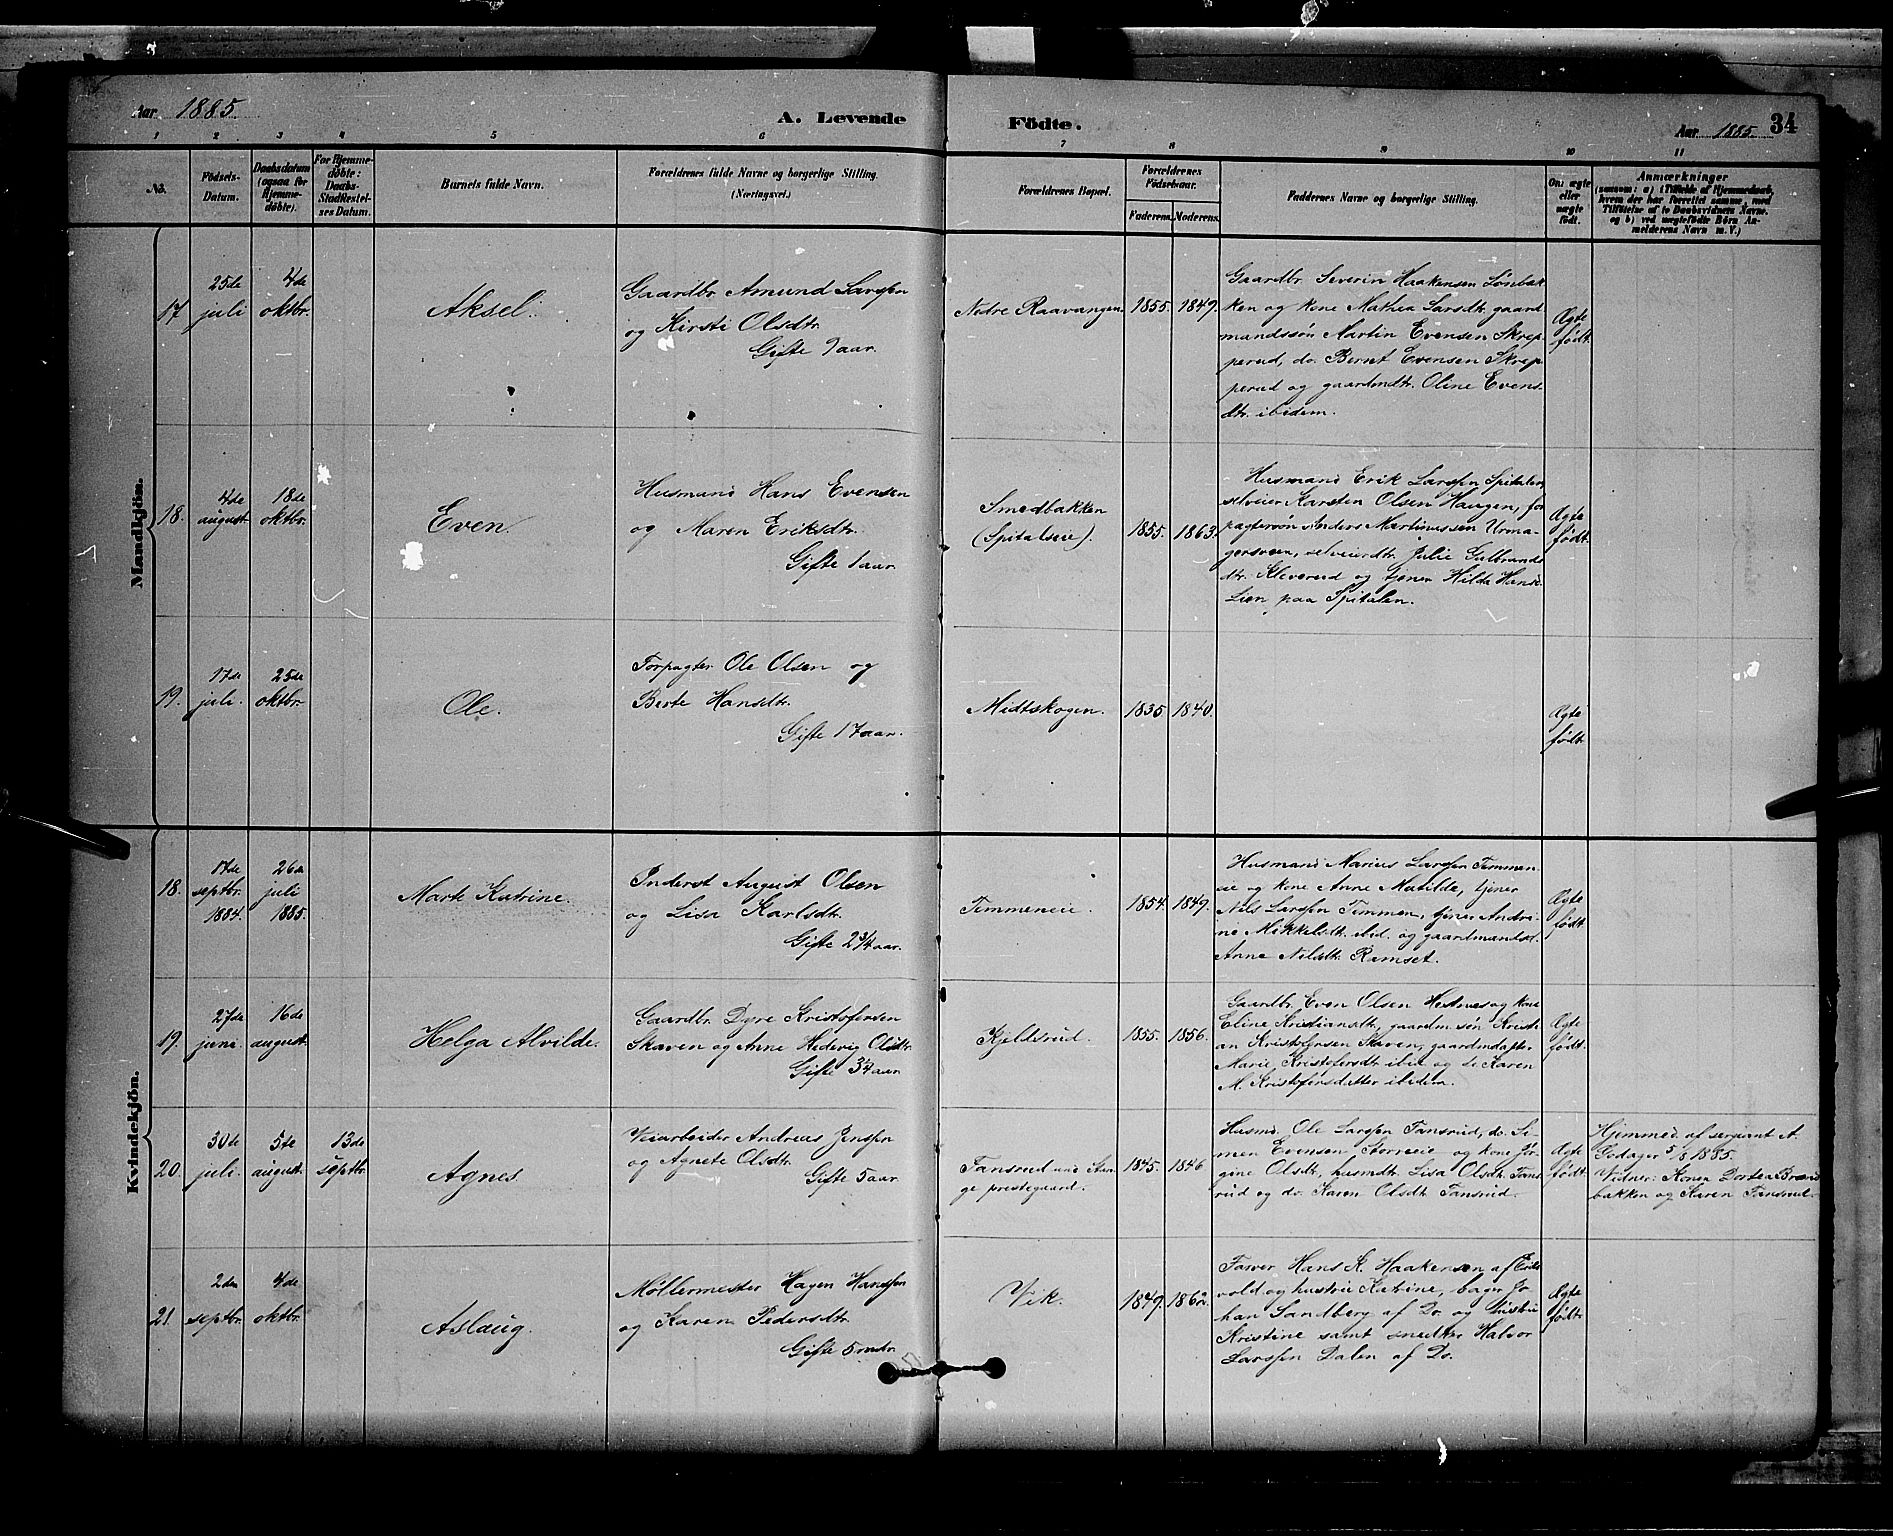 Aar 1885.
A. Levende Födte.
Aar 1885. 34
1 2 3 4 5 6 7 8 9 10 11
No.
Födsels-
Datum.
Daabsdatum
(ogsaa for
Hjemme-
döbte).
For Hjemme-
döbte:
Daabs-
Stadfæstel-
ses Datum.
Barnets fulde Navn.
Forældrenes fulde Navne og borgerlige Stilling.
(Næringsvei.)
Forældrenes Bopæl.
Forældrenes
Födselsaar.
Faderens. Moderens.
Faddernes Navne og borgerlige Stilling.
Om ægte
eller
uægte
födt.
Anmærkninger
(saasom: a) i Tilfælde af Hjemmedaab,
hvem der har forrettet samme, med
Tilföielse af to Daabsvidners Navne.
og b) ved uægtefödte Börn An-
melderens Navn m. V.)
Mandkjön.
17
25de
juli
4de
oktbr.
Aksel.
Gaardbr. Amund Larssen
og Kirsti Olsdtr.
Gifte 9 aar.
Nedre Raavangen.
1855. 1849.
Gaardbr. Severin Haakensen Sønbak-
ken og kone Mathea Larsdtr. gaard-
mandssøn Martin Evensen Skrep-
perud, do. Bernt Evensen Skrep-
perud og gaardmdtr. Oline Evens-
dtr. ibidem.
Ægte
født.
18.
4de
august
18de
oktbr.
Even.
Husmand Hans Evensen
og Maren Eriksdtr.
Gifte 1 aar.
Smedbakken
(Spitalseie).
1855. 1863.
Husmand Erik Larssen Spitalen,
selveier Karsten Olsen Haugen, for-
pagtersøn Anders Martinussen Urma-
gersveen, selveierdtr. Julie Gulbrands-
dtr. Kleverud og tjener Hilda Hansd.
Lien paa Spitalen.
Ægte
født.
19.
17de
juli.
25de
oktbr.
Ole.
Forpagter Ole Olsen og
Berte Hansdtr.
Gifte 17 aar.
Midtskogen.
1835 1840.
Ægte
født.
Kvindekjön.
18.
17de
septbr.
1884.
26de
juli
1885.
Marte Katrine.
Inderst August Olsen
og Lisa Karlsdtr.
Gifte 2 3/4 aar.
Temmeneie.
1854. 1849.
Husmand Marius Larssen Temmen-
eie og kone Anne Matilde, tjener
Nils Larssen Temmen, tjener Andri-
ne Mikkelsdtr. ibid. og gaardmandsd.
Anne Nilsdtr. Ramset.
Ægte
født.
19.
27de
juni.
16de
august.
Helga Alvilde.
Gaardbr. Dyre Kristofersen
Skaven og Anne Hedevig Olsdtr.
Gifte 3/4 aar
Kjeldsrud.
1855. 1856.
Gaardbr. Even Olsen Hestnes og kone
Eline Kristiansdtr, gaardm.søn Kristi-
an Kristofersen Skaven, gaardmdatter
Marie Kristofersdtr. ibid og do Karen
M. Kristofersdatter ibidem.
Ægte
født.
20.
30de
juli.
5te
august.
13de
septbr.
Agnes.
Veiarbeider Andreas Jenssen
og Agnete Olsdtr.
Gifte 5 aar.
Tansrud und. Stan-
ge prestegaard.
1845. 1846
Husmd. Ole Larssen Tansrud, do. Si-
men Evensen Storreeie og kone Jør-
gine Olsdtr, husmdt. Lisa Olsdtr. Tans-
rud og do. Karen Olsdtr. Tansrud.
Ægte
født.
Hjemmed. af sergeant A.
Godager 5/8 1885.
Vidner: Konen Dortea Brænd-
bakken og Karen Tansrud.
21.
2den
septbr.
4de
oktbr.
Aslaug.
Møllermester Hagen Hanssen
og Karen Pedersdtr.
Gifte 5 mdr.
Vik.
1849. 1862.
Farver Hans K. Haakensen af Eids-
vold og hustru Katrine, bager Jo-
han Sandberg af Do. og hustru
Kristine samt snedker Halvor
Larssen Dalen af Do.
Ægte
født.